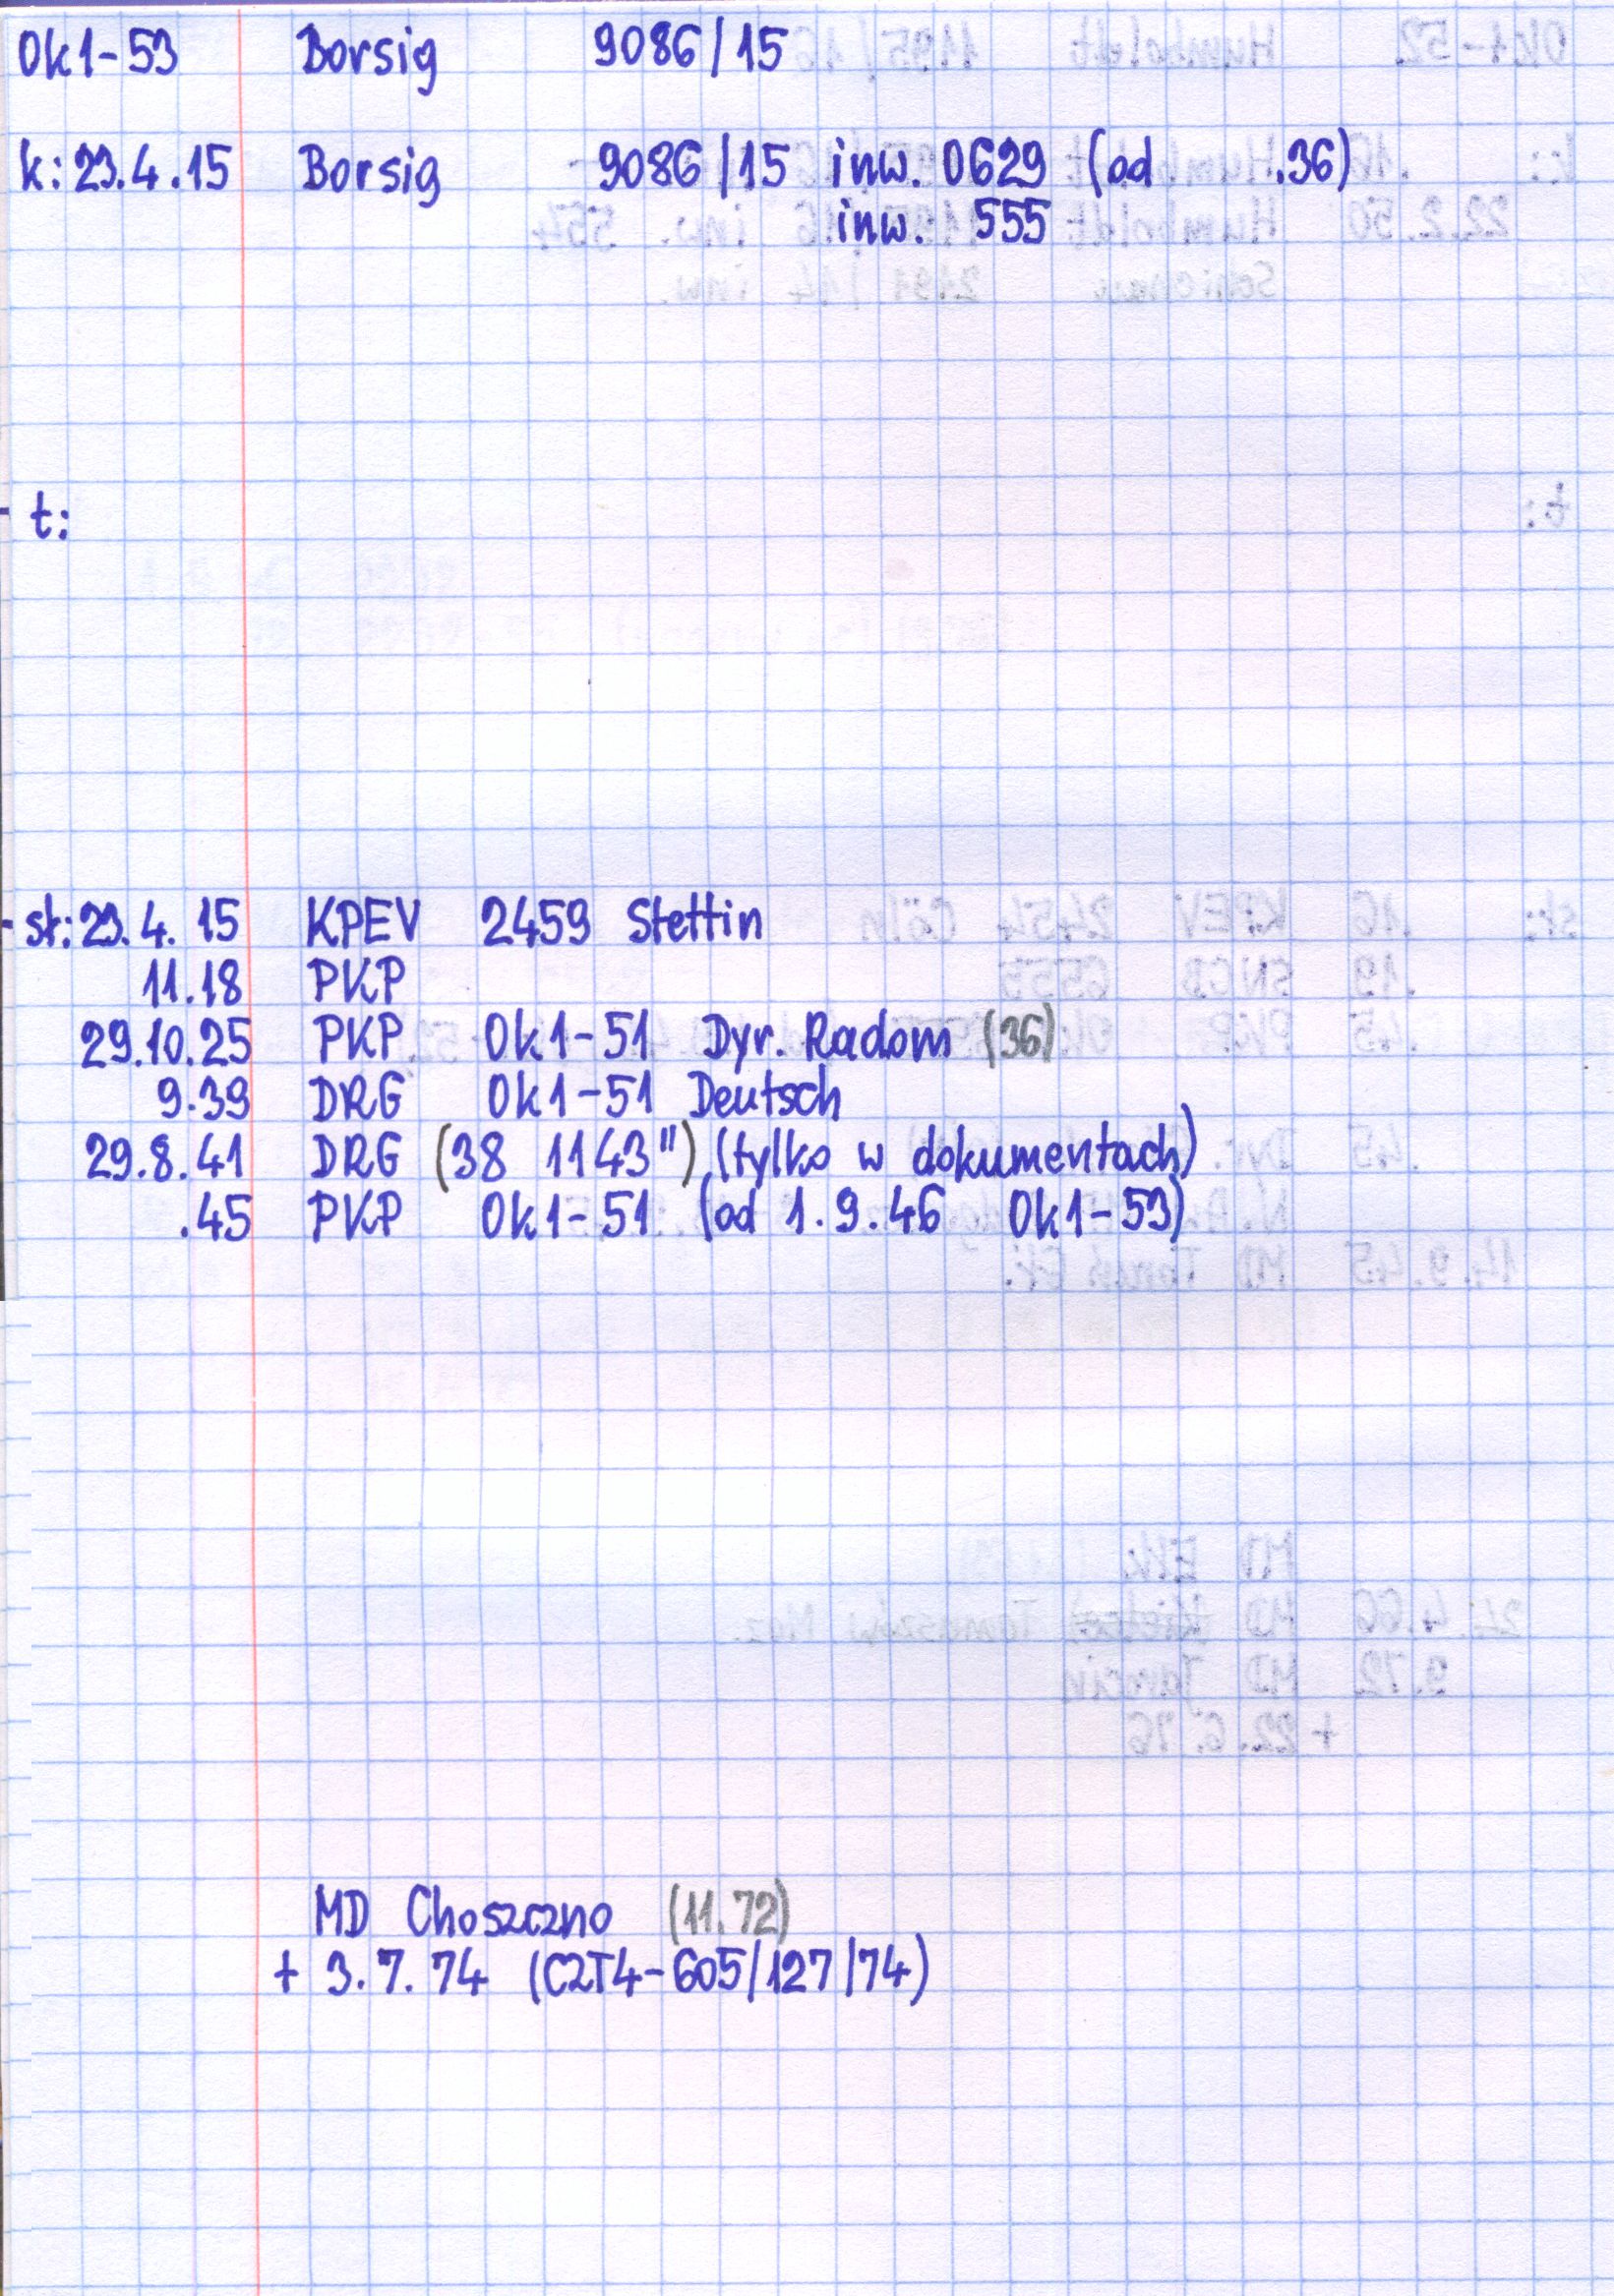 Ok1-53 Borsig 9086/15
k: 23.4.15 Borsig 9086/15 inw. 0629 (od .36)
inw. 555
t:
st: 23.4.15 KPEV 2459 Stettin
11.18 PKP
29.10.25 PKP Ok1-51 Dyr. Radom (36)
9.39 DRG Ok1-51 Deutsch
29.8.41 DRG (38 1143") (tylko w dokumentach)
.45 PKP Ok1-51 (od 1.9.46 Ok1-53)
MD Choszczno (11.72)
+ 3.7.74 (C2T4-605/127/74)